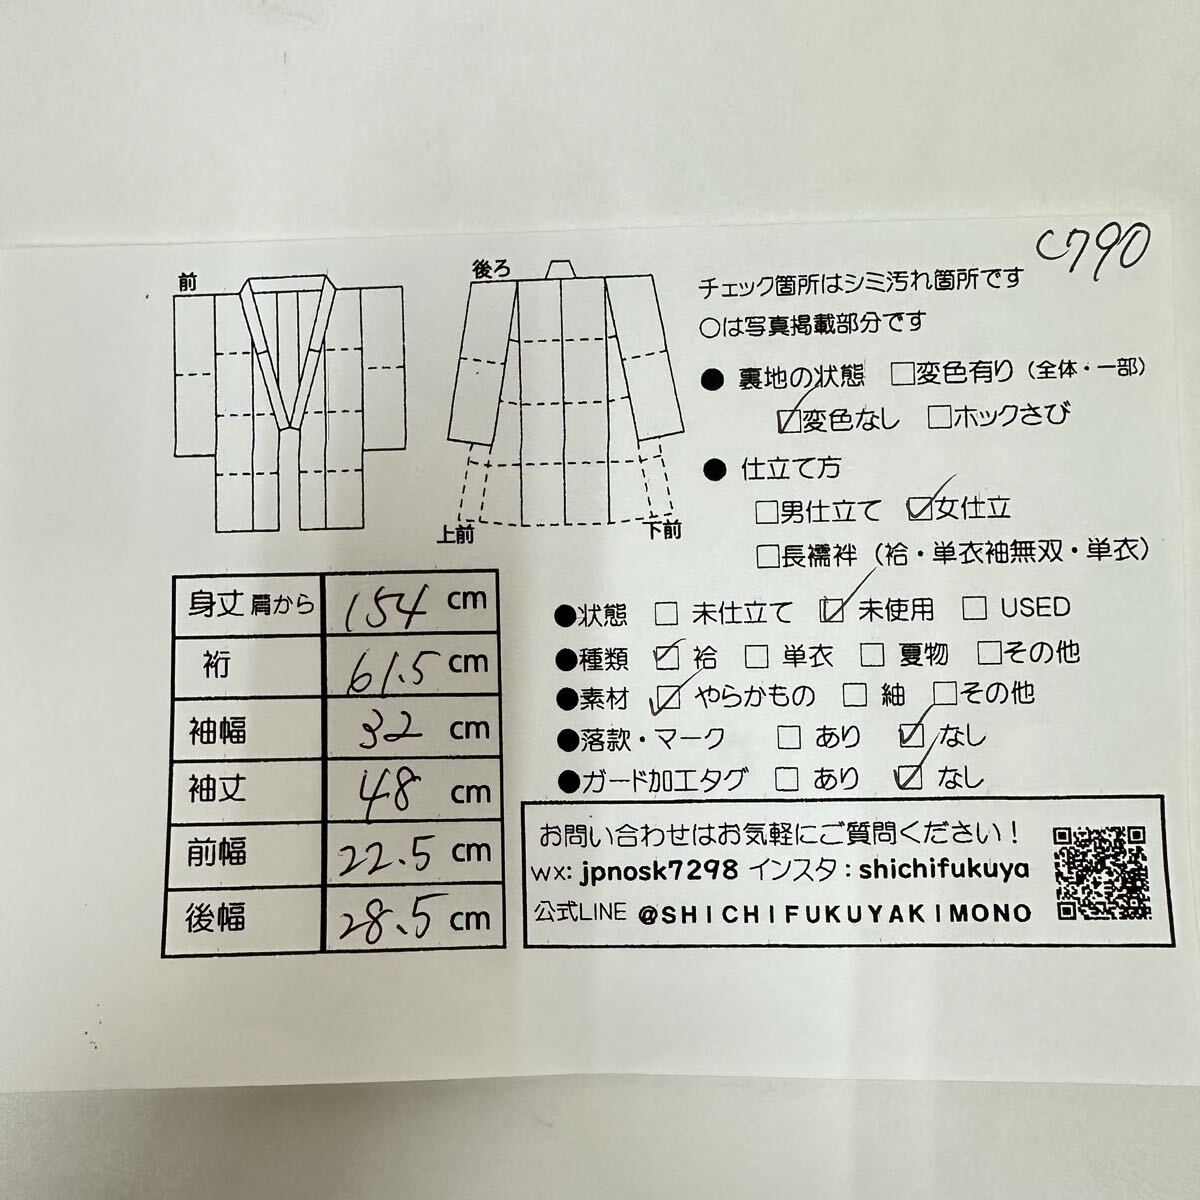 C790
前
後ろ
上前
下前
チェック箇所はシミ汚れ箇所です
○は写真掲載部分です
● 裏地の状態 □変色有り（全体・一部）
☑変色なし □ホックさび
● 仕立て方
□男仕立て ☑女仕立
□長襦袢（袷・単衣袖無双・単衣）
●状態 □ 未仕立て ☑ 未使用 □ USED
●種類 ☑ 袷 □ 単衣 □ 夏物 □その他
●素材 ☑ やらかもの □ 紬 □その他
●落款・マーク □ あり ☑ なし
●ガード加工タグ □ あり ☑ なし
身丈 肩から 154 cm
裄 61.5 cm
袖幅 32 cm
袖丈 48 cm
前幅 22.5 cm
後幅 28.5 cm
お問い合わせはお気軽にご質問ください！
wx: jpnosk7298 インスタ：shichifukuya
公式LINE @SHICHIFUKUYAKIMONO